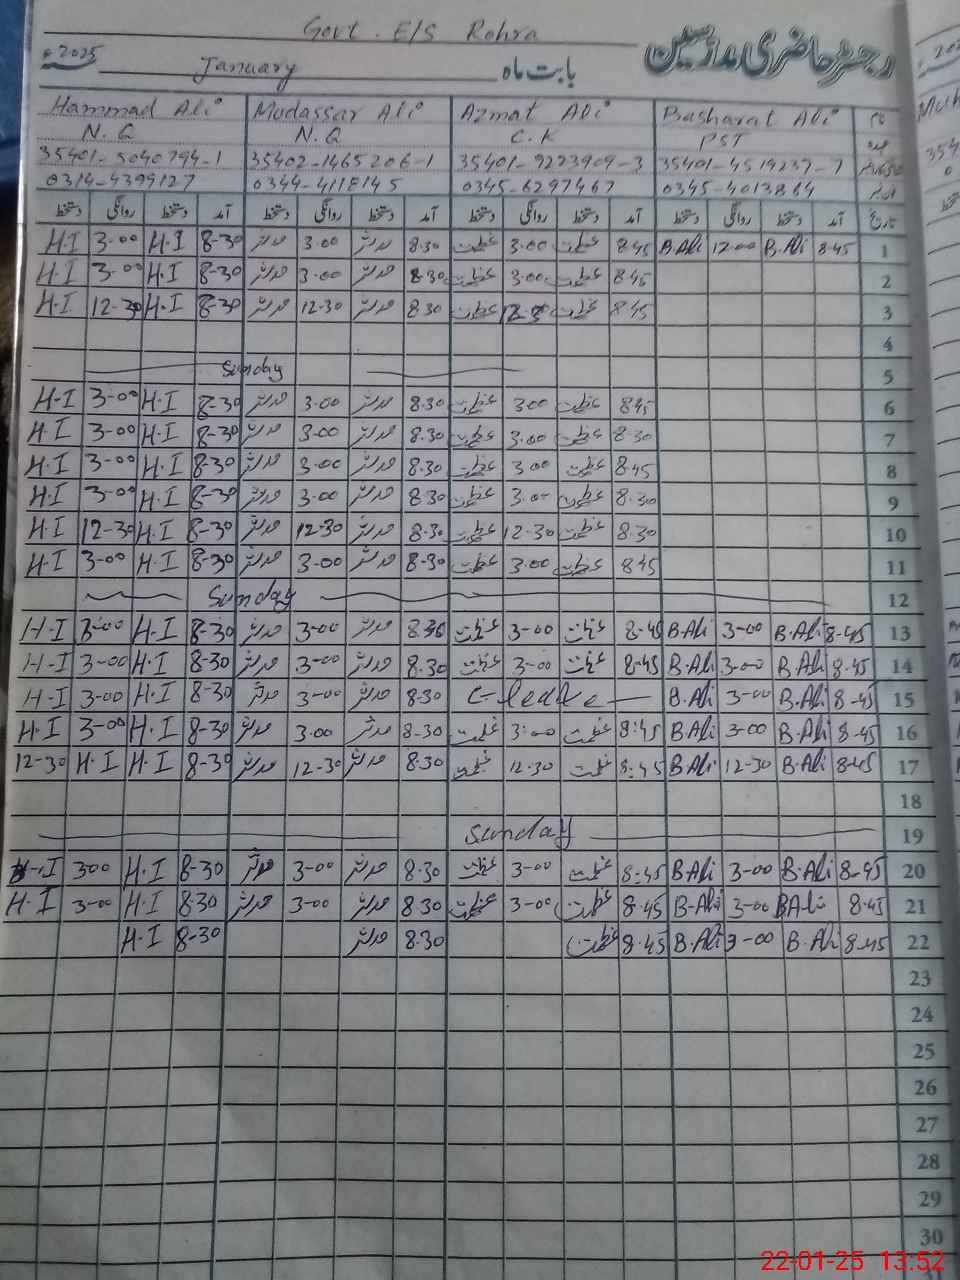 Govt. E/S Rohra
رجسٹر حاضری مدرسین
ء 2025
January بابت ماہ
Hammad Ali Mudassar Ali Azmat Ali Basharat Ali نام
N.Q N.Q C.K PST عہدہ
35401-5040794-1 35402-1465206-1 35401-9223909-3 35401-4519237-7
0314-4399127 0344-4118145 0345-6297467 0345-4013864
دستخط روانگی دستخط آمد دستخط روانگی دستخط آمد دستخط روانگی دستخط آمد دستخط روانگی دستخط آمد تاریخ
H.I 3-00 H.I 8-30 مدثر 3.00 مدثر 8.30 عظمت 3.00 عظمت 8.45 B.Ali 12-00 B.Ali 8.45 1
H.I 3-00 H.I 8-30 مدثر 3.00 مدثر 8.30 عظمت 3.00 عظمت 8.45 2
H.I 12-30 H.I 8-30 مدثر 12.30 مدثر 8.30 عظمت عظمت 8.45 3
4
Sunday 5
H-I 3-00 H.I 8-30 مدثر 3.00 مدثر 8.30 عظمت 3.00 عظمت 8.45 6
H.I 3-00 H.I 8-30 مدثر 3.00 مدثر 8.30 عظمت 3.00 عظمت 8.30 7
H.I 3-00 H.I 8-30 مدثر 3.00 مدثر 8.30 عظمت 3.00 عظمت 8.45 8
H.I 3-00 H.I 8-30 مدثر 3.00 مدثر 8.30 عظمت 3.00 عظمت 8.30 9
H.I 12-30 H.I 8-30 مدثر 12-30 مدثر 8.30 عظمت 12-30 عظمت 8.30 10
H.I 3-00 H.I 8-30 مدثر 3-00 مدثر 8-30 عظمت 3.00 عظمت 8.45 11
Sunday 12
H-I 3-00 H.I 8-30 مدثر 3-00 مدثر 8.30 عظمت 3-00 عظمت 8-45 B.Ali 3-00 B.Ali 8-45 13
H-I 3-00 H.I 8-30 مدثر 3-00 مدثر 8.30 عظمت 3-00 عظمت 8-45 B.Ali 3-00 B.Ali 8.45 14
H-I 3-00 H.I 8-30 مدثر 3-00 مدثر 8.30 B.Ali 3-00 B.Ali 8-45 15
H.I 3-00 H.I 8-30 مدثر 3.00 مدثر 8-30 عظمت 3:00 عظمت 8:45 B.Ali 3-00 B.Ali 8-45 16
12-30 H.I H.I 8-30 مدثر 12-30 مدثر 8.30 عظمت 12.30 عظمت 8:45 B.Ali 12-30 B.Ali 8-45 17
18
Sunday 19
H.I 300 H.I 8-30 مدثر 3-00 مدثر 8.30 عظمت 3-00 عظمت 8:45 B.Ali 3-00 B.Ali 8-45 20
H.I 3-00 H.I 8.30 مدثر 3-00 مدثر 8.30 عظمت 3-00 عظمت 8.45 B-Ali 3-00 B.Ali 8.45 21
H.I 8-30 مدثر 8.30 عظمت 8.45 B.Ali 3-00 B.Ali 8.45 22
23
24
25
26
27
28
29
30
22-01-25 13:52